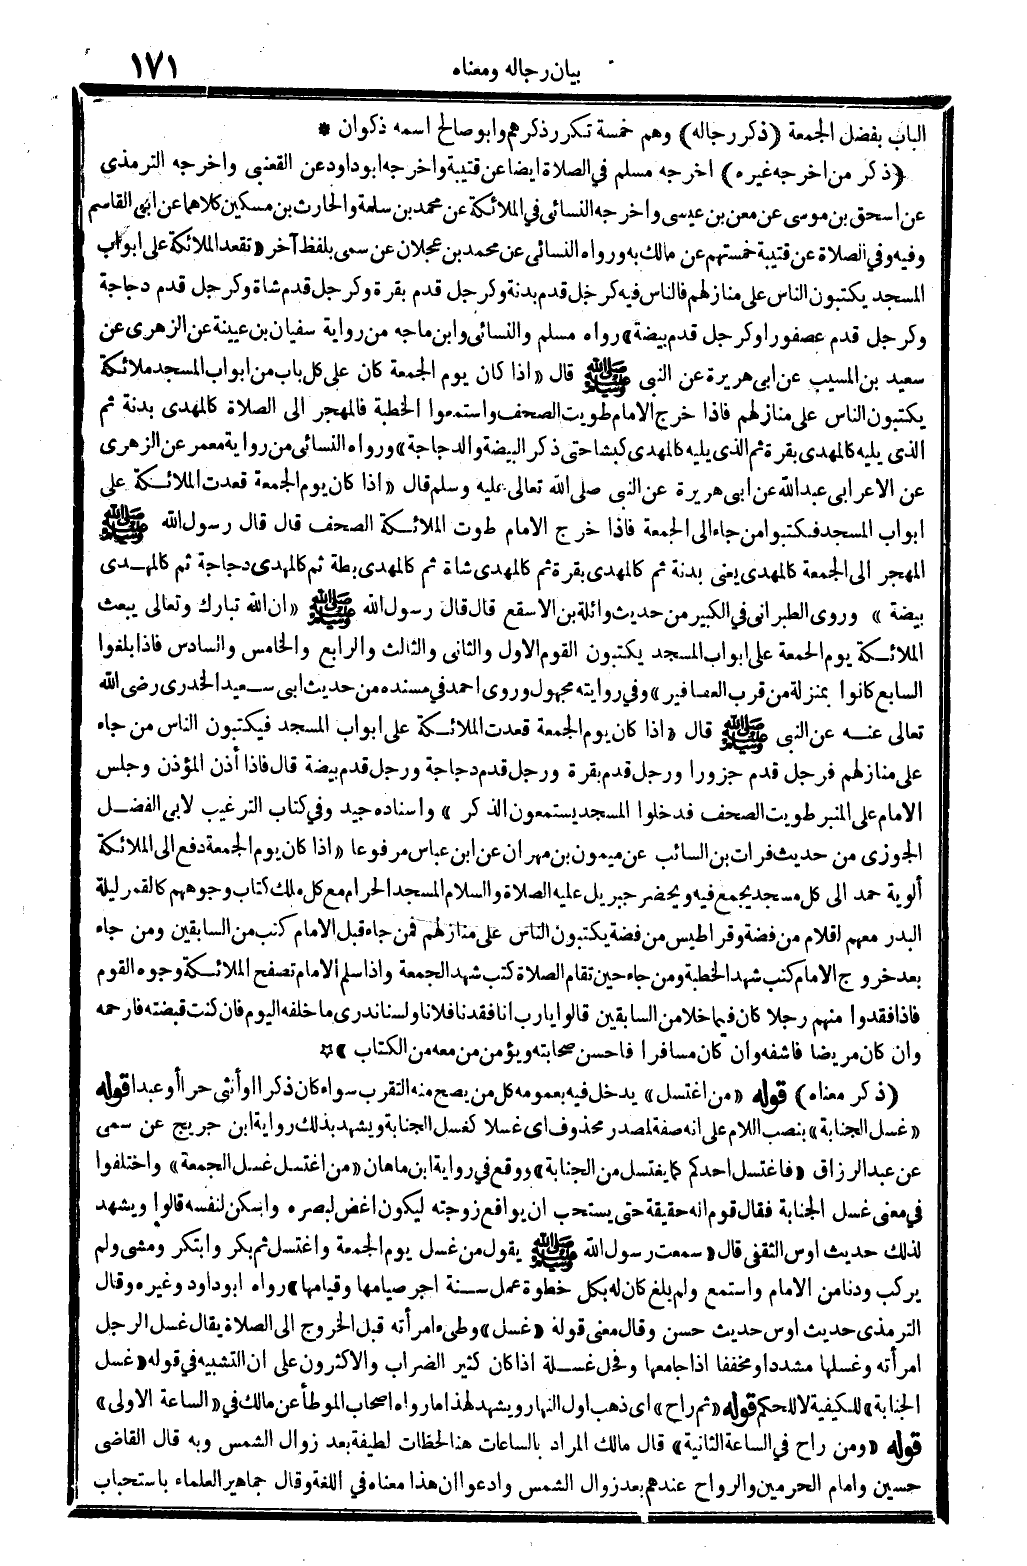 بيان رجاله ومعناه
١٧١
الباب بفضل الجمعة (ذكر رجاله) وهم خمسة تكرر ذكرهم وابو صالح اسمه ذكوان *
(ذكر من اخرجه غيره) اخرجه مسلم في الصلاة ايضا عن قتيبة واخرجه ابو داود عن القعنبى واخرجه الترمذى
عن اسحق بن موسى عن معن بن عيسى واخرجه النسائى في الملائكة عن محمد بن سلمة والحارث بن مسكين كلاهما عن ابن القاسم
وفيه وفي الصلاة عن قتيبة خمستهم عن مالك به ورواه النسائى عن محمد بن عجلان عن سمى بلفظ آخر «تقعد الملائكة على ابواب
المسجد يكتبون الناس على منازلهم فالناس فيه كرجل قدم بدنة وكرجل قدم بقرة وكرجل قدم شاة وكرجل قدم دجاجة
وكرجل قدم عصفورا وكرجل قدم بيضة» رواه مسلم والنسائى وابن ماجه من رواية سفيان بن عيينة عن الزهرى عن
سعيد بن المسيب عن ابى هريرة عن النبى ﷺ قال «اذا كان يوم الجمعة كان على كل باب من ابواب المسجد ملائكة
يكتبون الناس على منازلهم فاذا خرج الامام طويت الصحف واستمعوا الخطبة فالمهجر الى الصلاة كالمهدى بدنة ثم
الذى يليه كالمهدى بقرة ثم الذى يليه كالمهدى كبشا حتى ذكر البيضة والدجاجة» ورواه النسائى من رواية معمر عن الزهرى
عن الاعرابى عبد الله عن ابى هريرة عن النبى صلى الله تعالى عليه وسلم قال «اذا كان يوم الجمعة قعدت الملائكة على
ابواب المسجد فكتبوا من جاء الى الجمعة فاذا خرج الامام طوت الملائكة الصحف قال قال رسول الله ﷺ
المهجر الى الجمعة كالمهدى يعنى بدنة ثم كالمهدى بقرة ثم كالمهدى شاة ثم كالمهدى بطة ثم كالمهدى دجاجة ثم كالمهدى
بيضة» وروى الطبرانى في الكبير من حديث واثلة بن الاسقع قال قال رسول الله ﷺ «ان الله تبارك وتعالى يبعث
الملائكة يوم الجمعة على ابواب المسجد يكتبون القوم الاول والثانى والثالث والرابع والخامس والسادس فاذا بلغوا
السابع كانوا بمنزلة من قرب العصافير» وفي روايته مجهول وروى احمد في مسنده من حديث ابى سعيد الخدرى رضى الله
تعالى عنه عن النبى ﷺ قال «اذا كان يوم الجمعة قعدت الملائكة على ابواب المسجد فيكتبون الناس من جاء
على منازلهم فرجل قدم جزورا ورجل قدم بقرة ورجل قدم دجاجة ورجل قدم بيضة قال فاذا أذن المؤذن وجلس
الامام على المنبر طويت الصحف فدخلوا المسجد يستمعون الذكر» واسناده جيد وفي كتاب الترغيب لابى الفضل
الجوزى من حديث فرات بن السائب عن ميمون بن مهران عن ابن عباس مرفوعا «اذا كان يوم الجمعة دفع الى الملائكة
ألوية حمد الى كل مسجد يجمع فيه ويحضر جبريل عليه الصلاة والسلام المسجد الحرام مع كل ملك كتاب وجوههم كالقمر ليلة
البدر معهم اقلام من فضة وقراطيس من فضة يكتبون الناس على منازلهم فمن جاء قبل الامام كتب من السابقين ومن جاء
بعد خروج الامام كتب شهد الخطبة ومن جاء حين تقام الصلاة كتب شهد الجمعة واذا سلم الامام تصفح الملائكة وجوه القوم
فاذا فقدوا منهم رجلا كان فيما خلا من السابقين قالوا يا رب انا فقدنا فلانا ولسنا ندرى ما خلفه اليوم فان كنت قبضته فارحمه
وان كان مريضا فاشفه وان كان مسافرا فاحسن صحابته ويؤمن من معه من الكتاب» ☆
(ذكر معناه) قوله «من اغتسل» يدخل فيه بعمومه كل من يصح منه التقرب سواء كان ذكرا او أنثى حرا أو عبدا قوله
«غسل الجنابة» بنصب اللام على انه صفة لمصدر محذوف اى غسلا كغسل الجنابة ويشهد بذلك رواية ابن جريج عن سمى
عن عبد الرزاق «فاغتسل احدكم كما يغتسل من الجنابة» ووقع في رواية ابن ماهان «من اغتسل غسل الجمعة» واختلفوا
في معنى غسل الجنابة فقال قوم انه حقيقة حتى يستحب ان يواقع زوجته ليكون اغض لبصره واسكن لنفسه قالوا ويشهد
لذلك حديث اوس الثقفى قال «سمعت رسول الله ﷺ يقول من غسل يوم الجمعة واغتسل ثم بكر وابتكر ومشى ولم
يركب ودنا من الامام واستمع ولم يلغ كان له بكل خطوة عمل سنة اجر صيامها وقيامها» رواه ابو داود وغيره وقال
الترمذى حديث اوس حديث حسن وقال معنى قوله «غسل» وطىء امرأته قبل الخروج الى الصلاة يقال غسل الرجل
امرأته وغسلها مشددا ومخففا اذا جامعها وفحل غسلة اذا كان كثير الضراب والاكثرون على ان التشبيه في قوله «غسل
الجنابة» للكيفية لا للحكم قوله «ثم راح» اى ذهب اول النهار ويشهد لهذا ما رواه اصحاب الموطأ عن مالك في «الساعة الاولى»
قوله «ومن راح في الساعة الثانية» قال مالك المراد بالساعات هنا لحظات لطيفة بعد زوال الشمس وبه قال القاضى
حسين وامام الحرمين والرواح عندهم بعد زوال الشمس وادعوا ان هذا معناه في اللغة وقال جماهير العلماء باستحباب